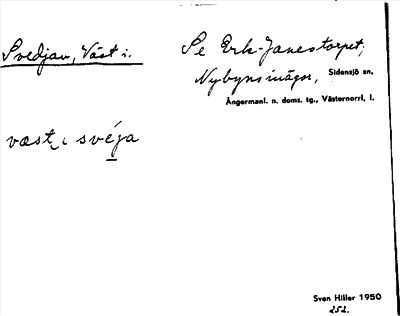 Svedjan, Väst i.
Se Erk-Janestorpet,
Nybyns inägor, Sidensjö sn,
Ångermanl. n. doms. tg., Västernorrl, l.
væst i svéja
Sven Hiller 1950
252.